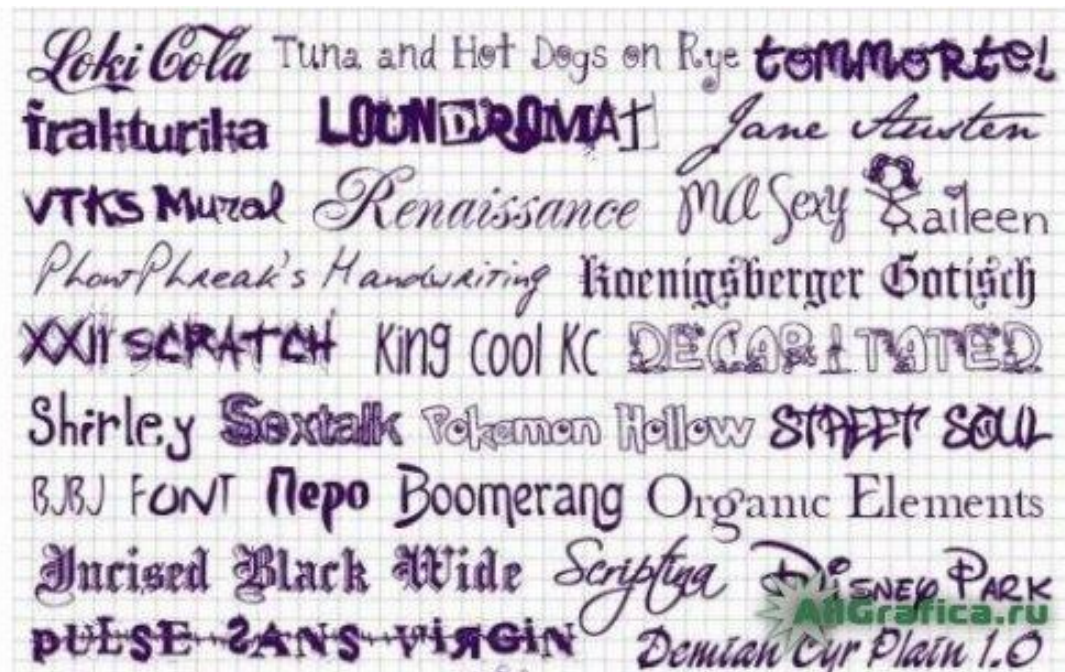 Loki Cola Tuna and Hot Dogs on Rye tommorte!
frakturika LOUNDROMAT Jane Austen
VTKS Mural Renaissance MA Sexy Raileen
PhontPhreak's Handwriting Koenigsberger Gotisch
XXII SCRATCH King Cool KC DECAPITATED
Shirley Sextalk Pokemon Hollow STREET SOUL
BJBJ FONT Перо Boomerang Organic Elements
Incised Black Wide Scriptina Disney Park
AllGrafica.ru
pULSE SANS ViRGiN Demian Cyr Plain 1.0